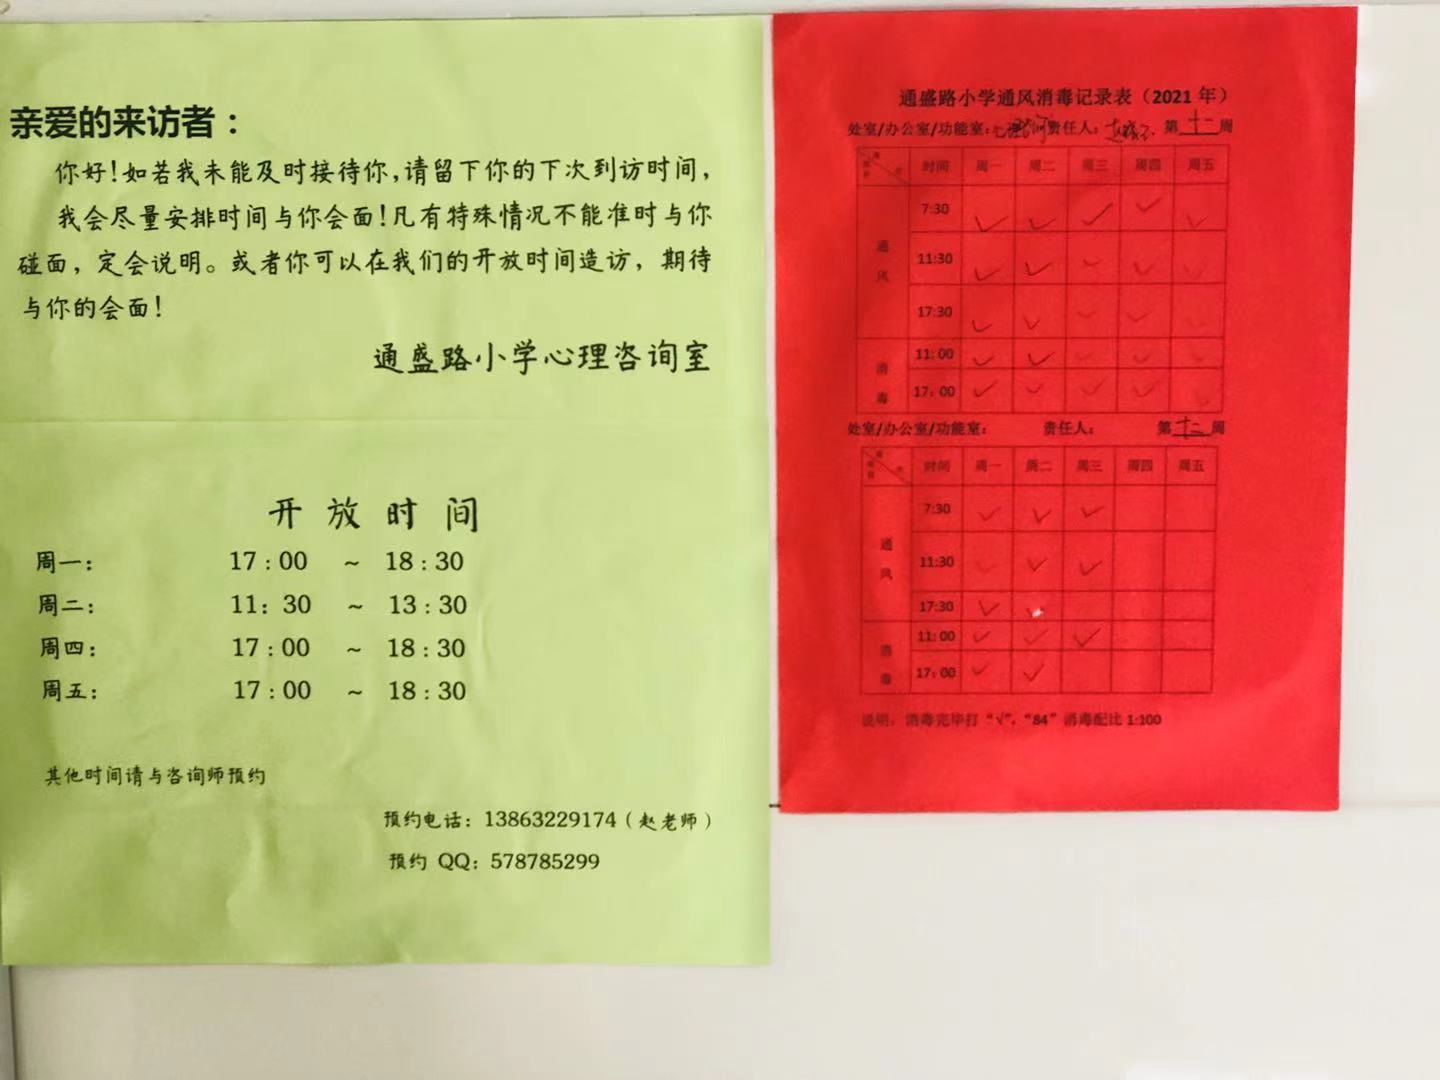 亲爱的来访者：
你好！如若我未能及时接待你，请留下你的下次到访时间，
我会尽量安排时间与你会面！凡有特殊情况不能准时与你
碰面，定会说明。或者你可以在我们的开放时间造访，期待
与你的会面！
通盛路小学心理咨询室
开放时间
周一： 17：00 ～ 18：30
周二： 11：30 ～ 13：30
周四： 17：00 ～ 18：30
周五： 17：00 ～ 18：30
其他时间请与咨询师预约
预约电话：13863229174（赵老师）
预约 QQ：578785299
通盛路小学通风消毒记录表（2021 年）
处室/办公室/功能室： 责任人： 第十一周
时间 周一 周二 周三 周四 周五
通风
7:30 ✓ ✓ ✓ ✓ ✓
11:30 ✓ ✓ ✓ ✓ ✓
17:30 ✓ ✓ ✓ ✓ ✓
消毒
11：00 ✓ ✓ ✓ ✓ ✓
17：00 ✓ ✓ ✓ ✓ ✓
处室/办公室/功能室： 责任人： 第十二周
时间 周一 周二 周三 周四 周五
通风
7:30 ✓ ✓ ✓
11:30 ✓ ✓ ✓
17:30 ✓ ✓
消毒
11：00 ✓ ✓ ✓
17：00 ✓ ✓
说明：消毒完毕打“√”，“84”消毒配比 1:100